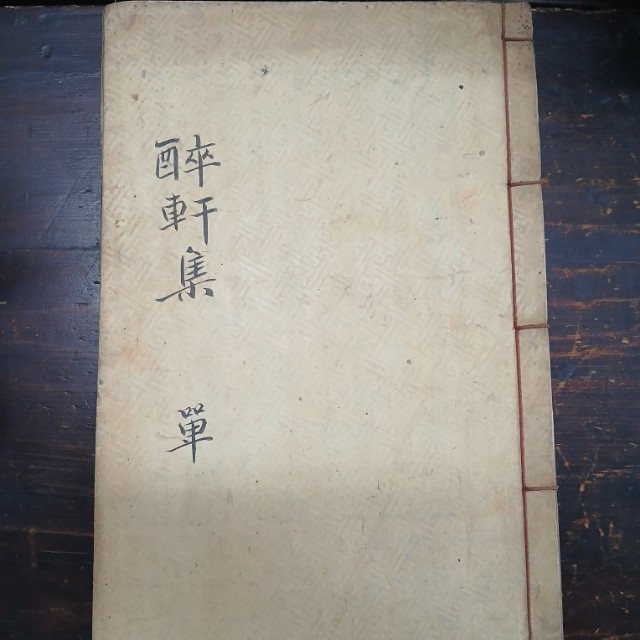 醉軒集 單